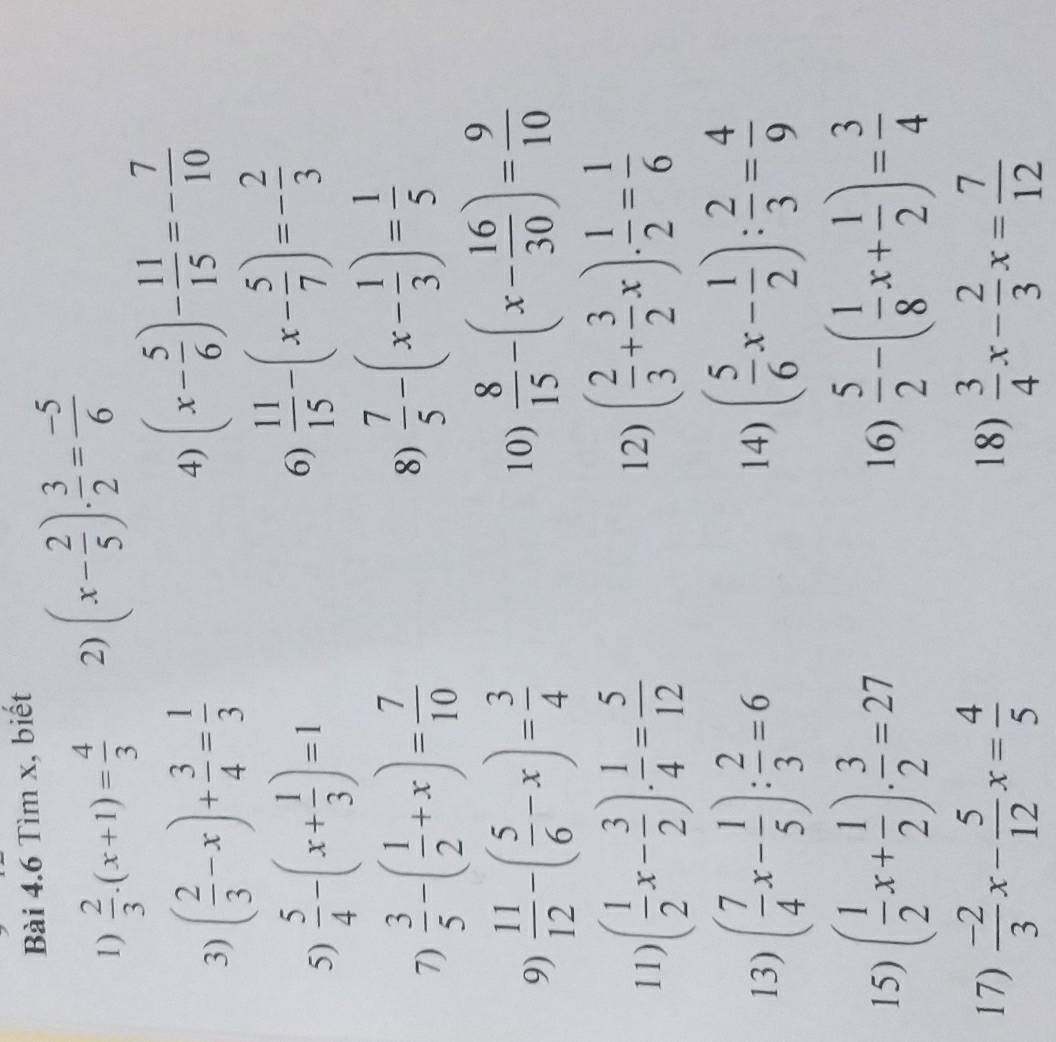 Bài 4.6 Tìm x, biết
1) $\frac{2}{3}.(x+1)=\frac{4}{3}$ 2) $\left(x-\frac{2}{5}\right).\frac{3}{2}=\frac{-5}{6}$
3) $\left(\frac{2}{3}-x\right)+\frac{3}{4}=\frac{1}{3}$ 4) $\left(x-\frac{5}{6}\right)-\frac{11}{15}=-\frac{7}{10}$
5) $\frac{5}{4}-\left(x+\frac{1}{3}\right)=1$ 6) $\frac{11}{15}-\left(x-\frac{5}{7}\right)=-\frac{2}{3}$
7) $\frac{3}{5}-\left(\frac{1}{2}+x\right)=\frac{7}{10}$ 8) $\frac{7}{5}-\left(x-\frac{1}{3}\right)=\frac{1}{5}$
9) $\frac{11}{12}-\left(\frac{5}{6}-x\right)=\frac{3}{4}$ 10) $\frac{8}{15}-\left(x-\frac{16}{30}\right)=\frac{9}{10}$
11) $\left(\frac{1}{2}x-\frac{3}{2}\right).\frac{1}{4}=\frac{5}{12}$ 12) $\left(\frac{2}{3}+\frac{3}{2}x\right).\frac{1}{2}=\frac{1}{6}$
13) $\left(\frac{7}{4}x-\frac{1}{5}\right):\frac{2}{3}=6$ 14) $\left(\frac{5}{6}x-\frac{1}{2}\right):\frac{2}{3}=\frac{4}{9}$
15) $\left(\frac{1}{2}x+\frac{1}{2}\right).\frac{3}{2}=27$ 16) $\frac{5}{2}-\left(\frac{1}{8}x+\frac{1}{2}\right)=\frac{3}{4}$
17) $\frac{-2}{3}x-\frac{5}{12}x=\frac{4}{5}$ 18) $\frac{3}{4}x-\frac{2}{3}x=\frac{7}{12}$